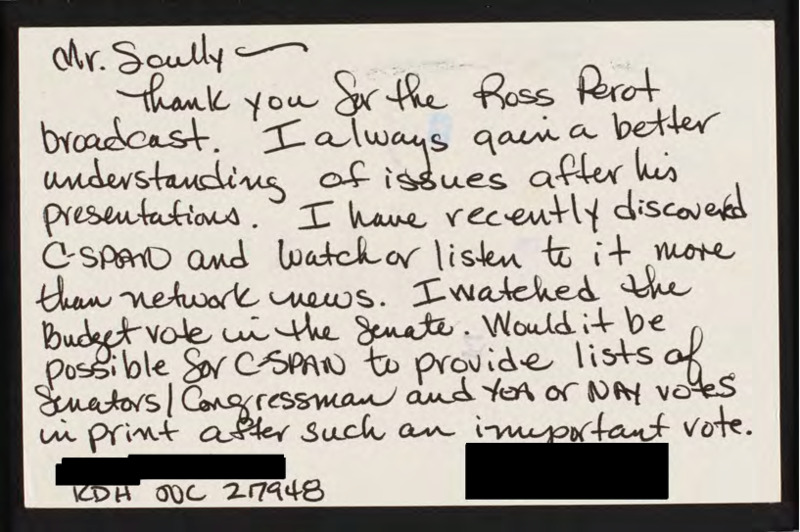 Mr. Scully
Thank you for the Ross Perot
broadcast. I always gain a better
understanding of issues after his
presentations. I have recently discovered
C-SPAN and watch or listen to it more
than network news. I watched the
Budget vote in the Senate. Would it be
possible for C-SPAN to provide lists of
Senators/Congressman and YEA or NAY votes
in print after such an important vote.
KDH NC 27948